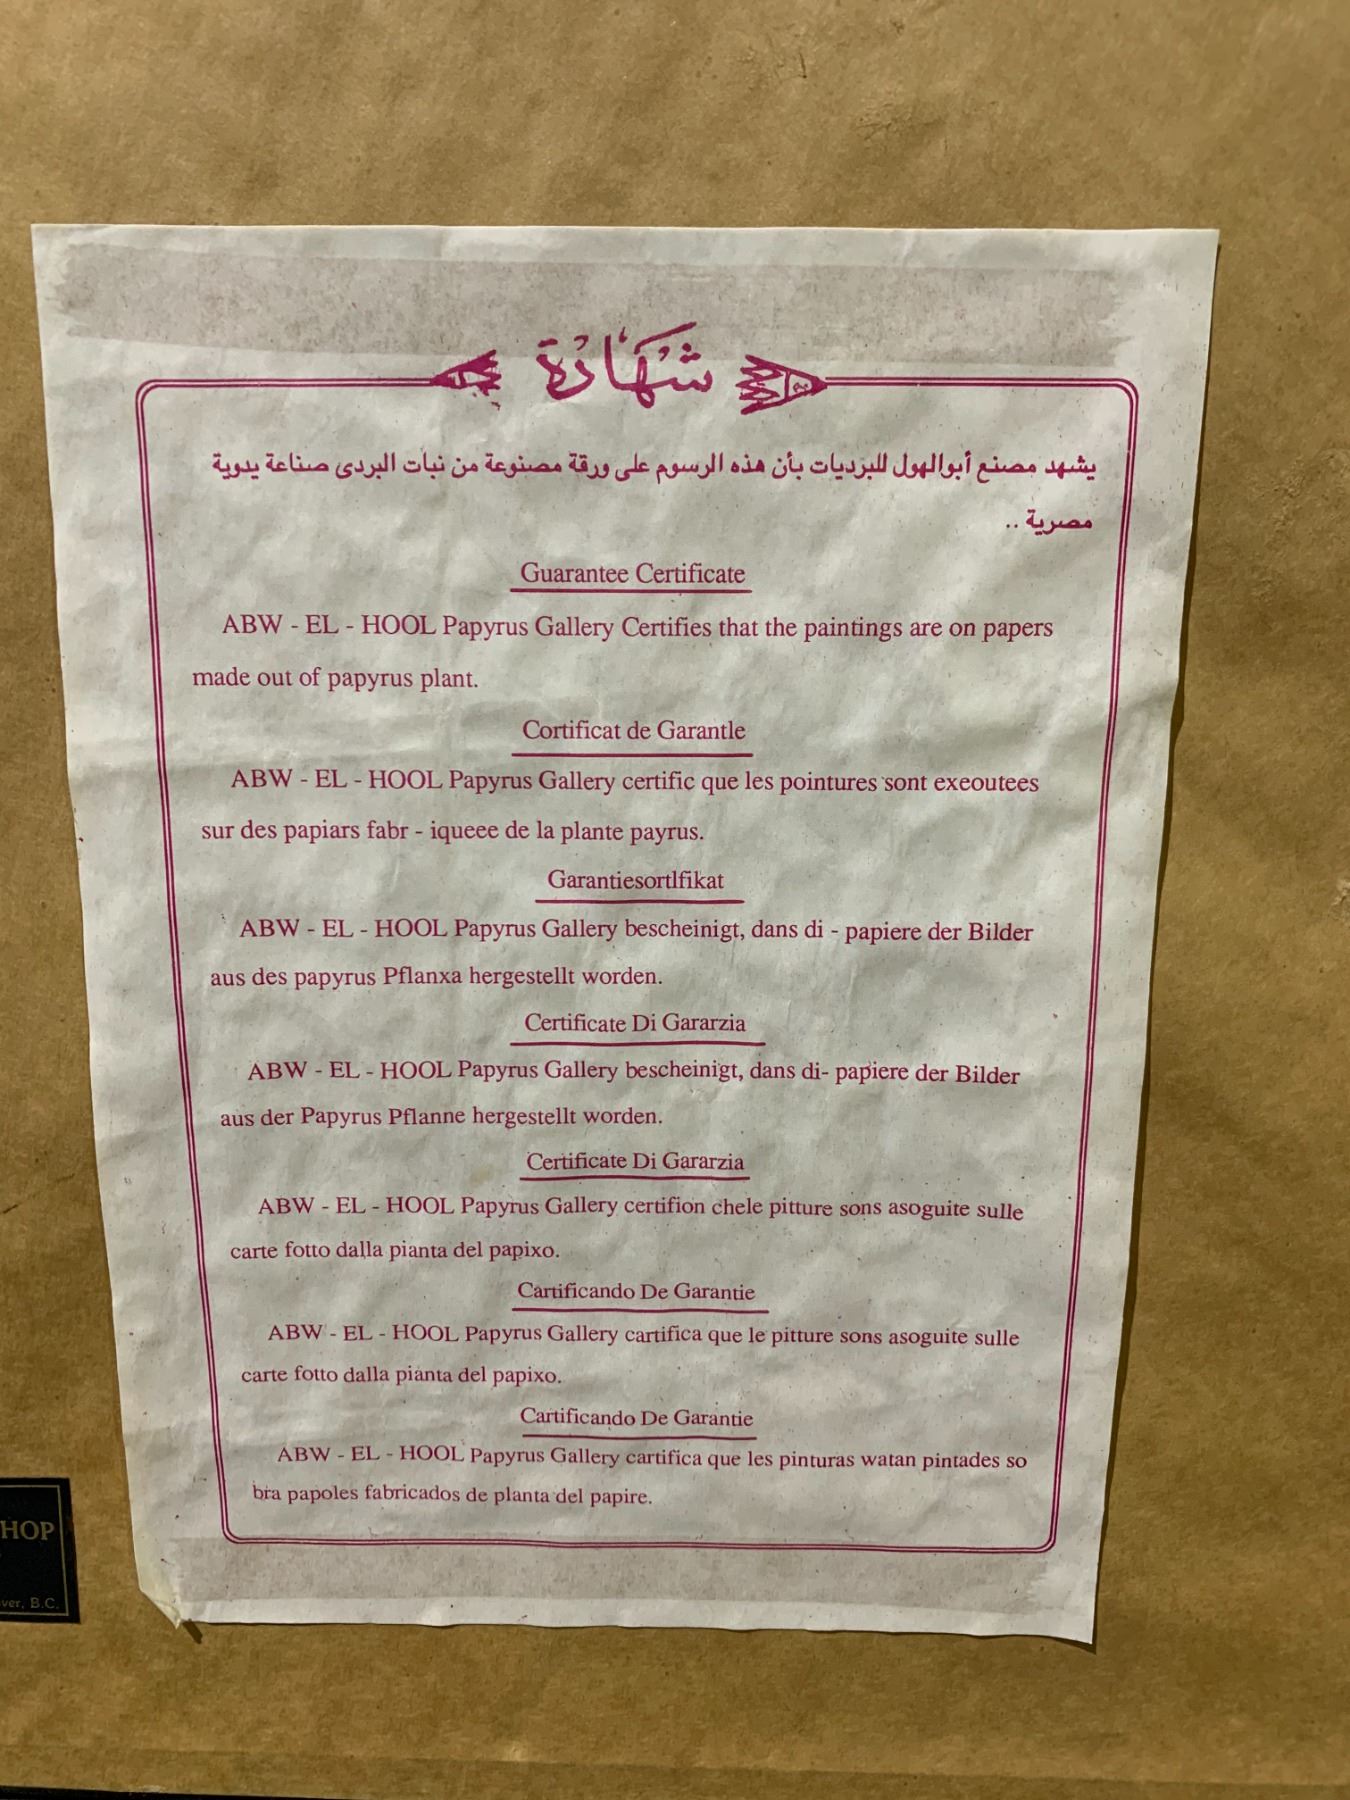 شهادة
يشهد مصنع أبوالهول للبرديات بأن هذه الرسوم على ورقة مصنوعة من نبات البردى صناعة يدوية
مصرية ..
Guarantee Certificate
ABW - EL - HOOL Papyrus Gallery Certifies that the paintings are on papers
made out of papyrus plant.
Cortificat de Garantle
ABW - EL - HOOL Papyrus Gallery certific que les pointures sont exeoutees
sur des papiars fabr - iqueee de la plante payrus.
Garantiesortlfikat
ABW - EL - HOOL Papyrus Gallery bescheinigt, dans di - papiere der Bilder
aus des papyrus Pflanxa hergestellt worden.
Certificate Di Gararzia
ABW - EL - HOOL Papyrus Gallery bescheinigt, dans di- papiere der Bilder
aus der Papyrus Pflanne hergestellt worden.
Certificate Di Gararzia
ABW - EL - HOOL Papyrus Gallery certifion chele pitture sons asoguite sulle
carte fotto dalla pianta del papixo.
Cartificando De Garantie
ABW - EL - HOOL Papyrus Gallery cartifica que le pitture sons asoguite sulle
carte fotto dalla pianta del papixo.
Cartificando De Garantie
ABW - EL - HOOL Papyrus Gallery cartifica que les pinturas watan pintades so
bra papoles fabricados de planta del papire.
HOP
ver, B.C.